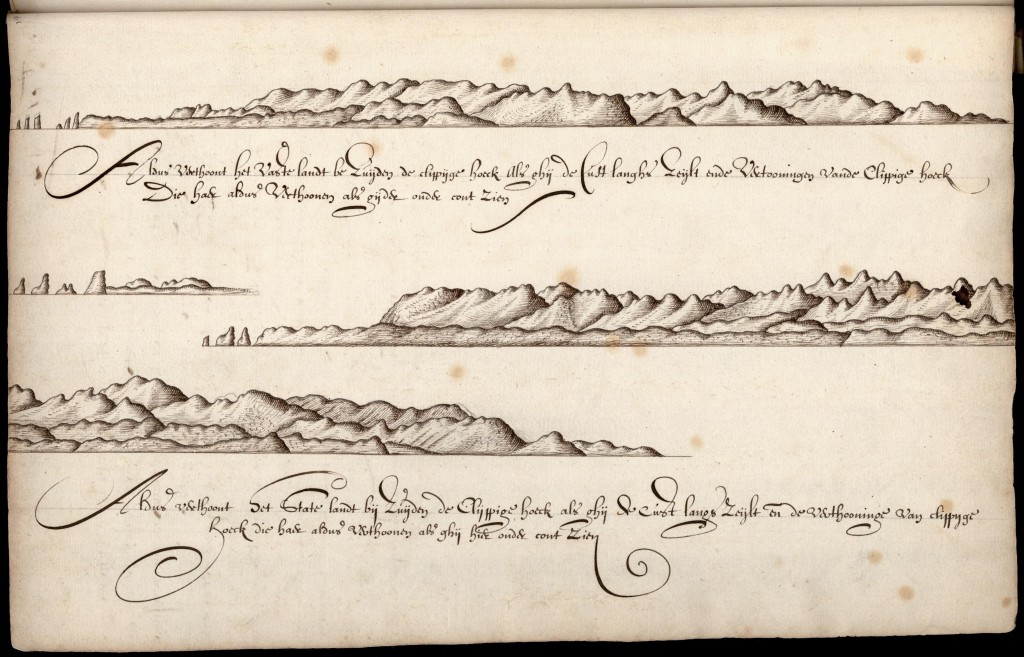 Aldus Verthoont het Vaste landt be Zuijden de clippijge hoeck Als ghij de Cust langhs Zeijlt ende Vertooningen vande Clippige hoeck
Die haer aldus Verthoonen als gijder onder comt Zien
Aldus verthoont Het State landt bij Zuijden de Clijppige hoeck als ghij de Cust langs Zeijlt en de Verthooninge Van clippijge
hoeck die haer aldus Verthoonen als ghij hier onder comt Zien